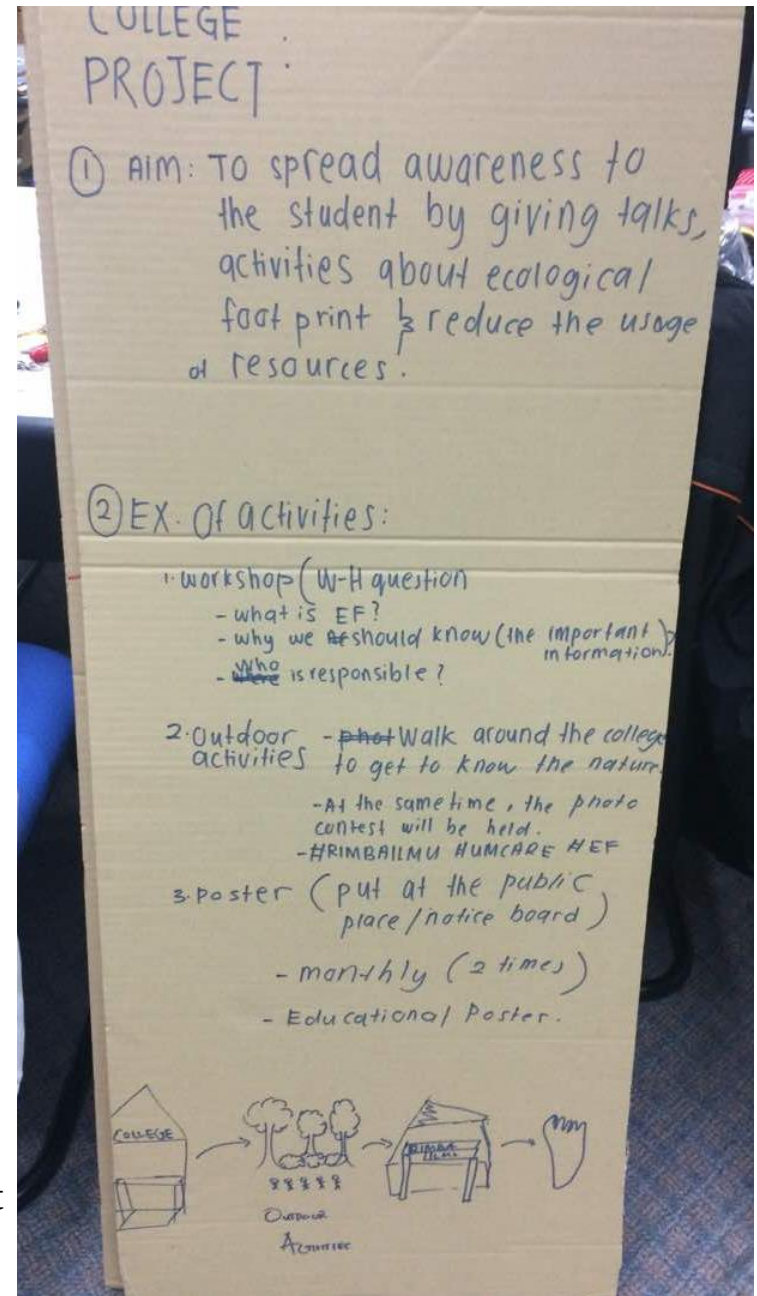 COLLEGE :
PROJECT
① AIM: TO spread awareness to
the student by giving talks,
activities about ecological
foot print & reduce the usage
of resources.
② EX. Of activities:
1. workshop (W-H question
- what is EF?
- why we should know (the important information)?
- Who is responsible?
2. Outdoor activities - Walk around the college
to get to know the nature.
- At the same time, the photo
contest will be held.
- #RIMBAILMU #UMCARE #EF
3. Poster (put at the public
place/notice board)
- monthly (2 times)
- Educational Poster.
COLLEGE
RIMBA
ILMU
OUTDOOR
ACTIVITIES
t